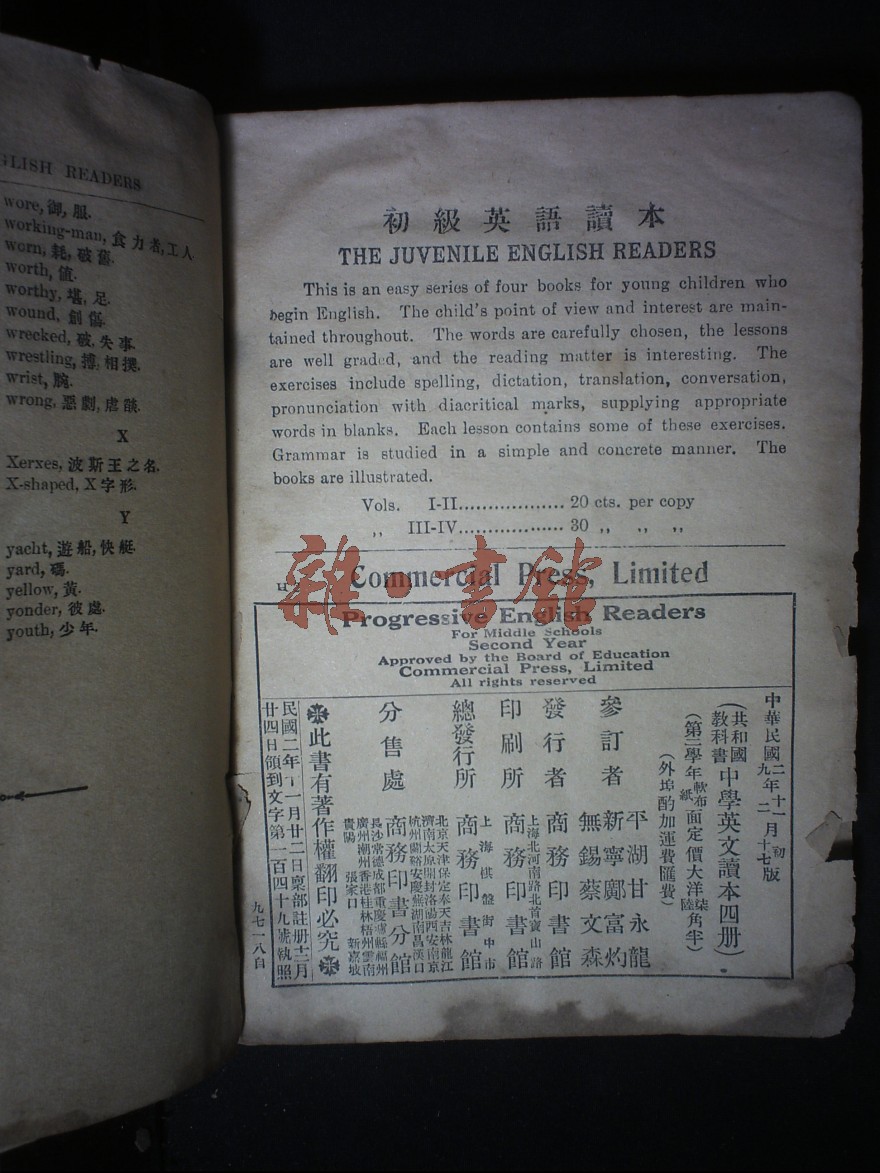 GLISH READERS
wore, 御, 服.
working-man, 食力者, 工人
worn, 耗, 破舊.
worth, 値.
worthy, 堪, 足.
wound, 創傷.
wrecked, 破, 失事.
wrestling, 搏, 相撲.
wrist, 腕.
wrong, 惡劇, 虐談.
X
Xerxes, 波斯王之名.
X-shaped, X字形.
Y
yacht, 遊船, 快艇.
yard, 碼.
yellow, 黃.
yonder, 彼處.
youth, 少年.
初級英語讀本
THE JUVENILE ENGLISH READERS
This is an easy series of four books for young children who
begin English. The child's point of view and interest are main-
tained throughout. The words are carefully chosen, the lessons
are well graded, and the reading matter is interesting. The
exercises include spelling, dictation, translation, conversation,
pronunciation with diacritical marks, supplying appropriate
words in blanks. Each lesson contains some of these exercises.
Grammar is studied in a simple and concrete manner. The
books are illustrated.
Vols. I-II.................. 20 cts. per copy
„ III-IV.................. 30 „ „ „
Commercial Press, Limited
雜·書館
Progressive English Readers
For Middle Schools
Second Year
Approved by the Board of Education
Commercial Press, Limited
All rights reserved
中華民國二年十一月初版
九年二月十七版
(共和國教科書中學英文讀本四册)
(第二學年軟布面定價大洋柒角半)
紙 陸
(外埠酌加運費匯費)
參訂者 平湖甘永龍
新寧鄺富灼
無錫蔡文森
發行者 商務印書館
上海北河南路北首寶山路
印刷所 商務印書館
上海棋盤街中市
總發行所 商務印書館
北京天津保定奉天吉林龍江
濟南太原開封洛陽西安南京
杭州蘭谿安慶蕪湖南昌漢口
分售處 商務印書分館
長沙常德成都重慶瀘縣福州
廣州潮州香港桂林梧州雲南
貴陽 張家口 新嘉坡
※此書有著作權翻印必究※
民國二年十一月廿二日稟部註册十二月
廿四日領到文字第一百四十九號執照
九七一八自